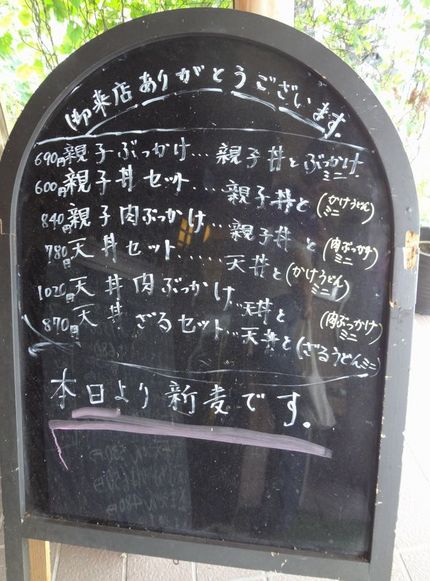 御来店ありがとうございます。
690円 親子ぶっかけ…親子丼とぶっかけミニ
600円 親子丼セット……親子丼と(かけうどんミニ)
840円 親子肉ぶっかけ…親子丼と(肉ぶっかけミニ)
780円 天丼セット……天丼と(かけうどんミニ)
1020円 天丼肉ぶっかけ…天丼と(肉ぶっかけミニ)
870円 天丼ざるセット…天丼と(ざるうどんミニ)
本日より新麦です。